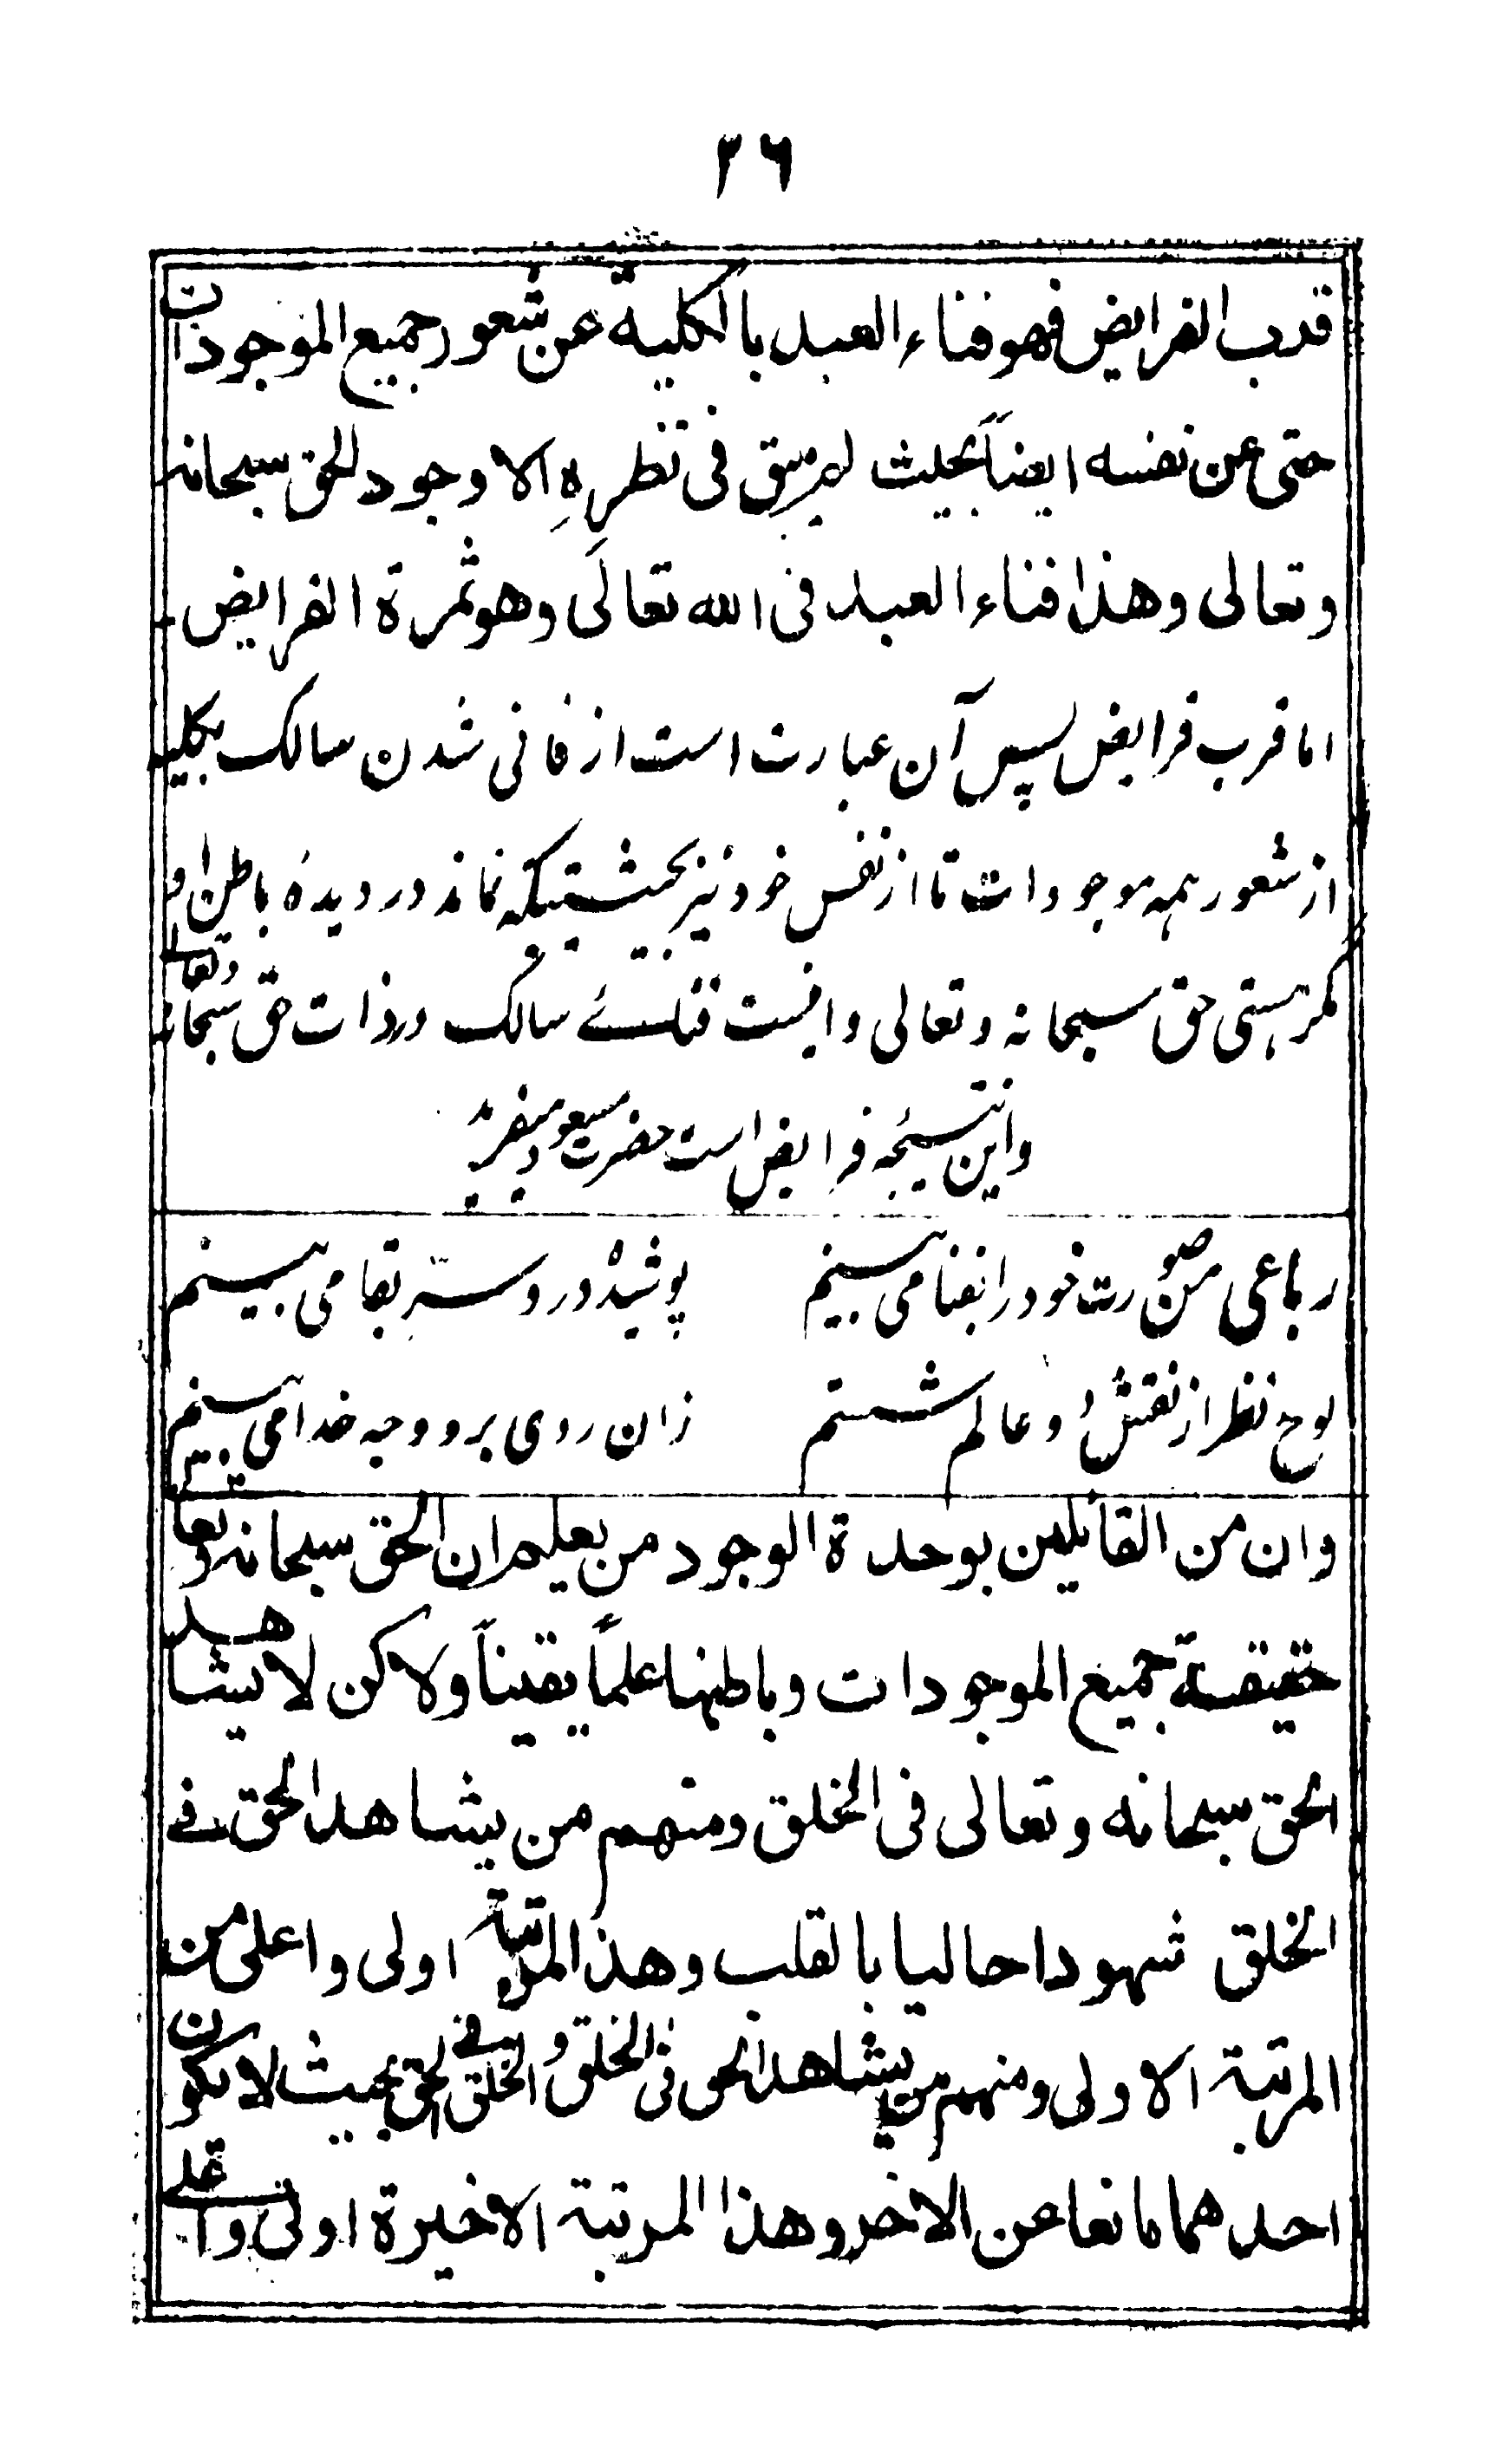 ٢٦
قرب الفرايض فهو فناء العبد بالكلية عن شعور جميع الموجودات
حتى عن نفسه ايضاً بحيث لم يبق فى نظرهِ الا وجود الحق سبحانه
وتعالى وهذا فناء العبد فى الله تعالَى وهو ثمرة الفرايض۔
اما قرب فرایض پس آن عبارت است از فانی شدن سالک بکلیه
از شعور همه موجودات تا از نفس خود نیز بحیثیتیکه نماند در دیدۂ باطن او
مگر هستی حق سبحانه وتعالی واینست فنائے سالک در ذات حق سبحانه وتعالے
واین نتیجه فرایض است حضرت مسعود میفرمایند
رباعی من صورت خود را بفنا می بینم پوشیده در و ستر بقا می بینم
لوح نظر از نقش دو عالم شستم زان روی بر و وجه خدا می بینم
وان من القائلين بوحدة الوجود من يعلم ان الحق سبحانه وتعالے
حقيقة جميع الموجودات وباطنها علماً يقيناً ولاكن لا يشاهد
الحق سبحانه وتعالى فى الخلق ومنهم من يشاهد الحق فے
الخلق شهودا حاليا بالقلب وهذا المرتبة اولى واعلى من
المرتبة الاولى ومنهم من يشاهد الحق فى الخلق و الخلق فے الحق بحيث لا يكون
احدهما مانعا عن الاخر وهذا المرتبة الاخيرة اولى واعلے